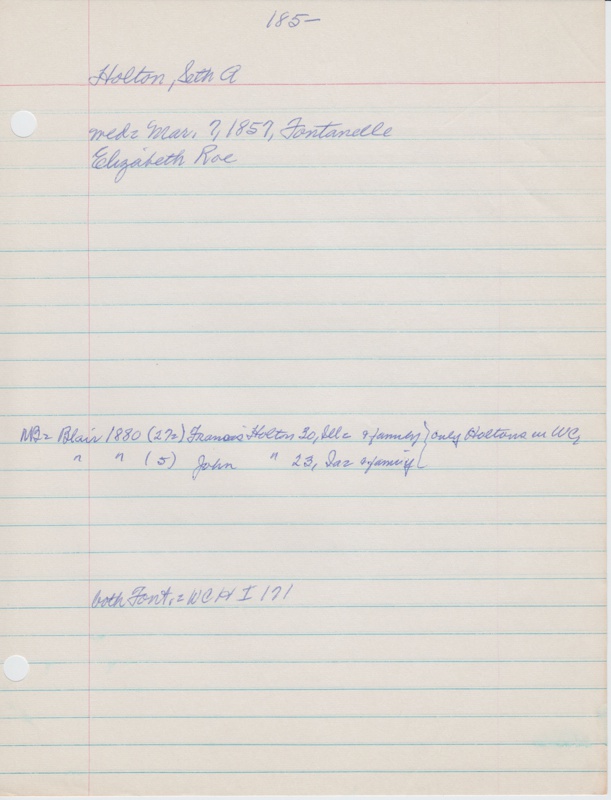 185-
Holton, Seth A
med= Mar. 7, 1857, Fontanelle
Elizabeth Roe
NB= Blair 1880 (272) Francis Holton 30, Ill= & family } only Holtons in WC,
" " (5) John " 23, Ia= & family {
both Font. = WCH I 171